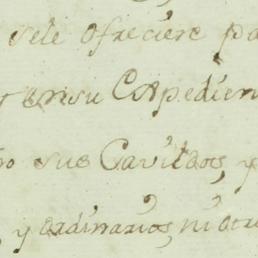 sele ofreciere pa
y en su Expedien
sus Cavildos, y
y ordinarios, ni otr